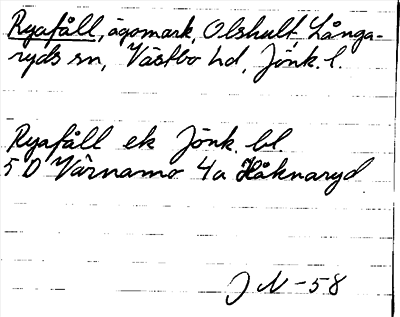 Ryafåll, ägomark, Olshult, Långa-
ryds sn, Västbo hd, Jönk. l.
Ryafåll ek Jönk. bl.
5 D Värnamo 4a Håknaryd
J N -58